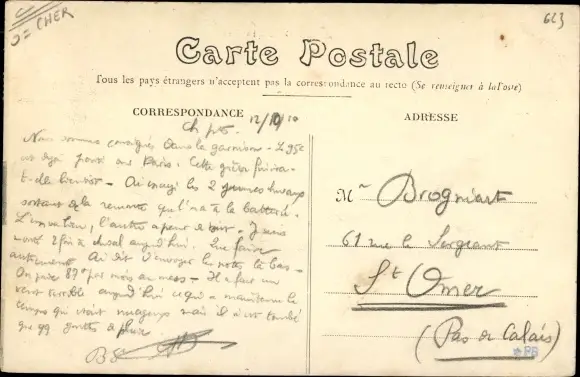 D= CHER
623
Carte Postale
Tous les pays étrangers n'acceptent pas la correspondance au recto (Se renseigner à la Poste)
CORRESPONDANCE
ADRESSE
12/10/10
Ch
Nous sommes consignés dans la garnison - Le 95e
est déjà parti sur Paris. Cette grève finira-
t-elle bientôt - Ai essayé les 2 jeunes chevaux
sortant de la remonte qu'il y a à la batterie.
L'un va bien, l'autre a peur de tout. - Je suis
monté 2 fois à cheval aujourd'hui. Que faire
autrement. Ai dit d'envoyer les notes là bas -
On paie 87 par mois au mess - Il a fait un
vent terrible aujourd'hui ce qui a maintenu le
temps qui était nuageux mais il n'est tombé
que qq gouttes de pluie.
Bs
Mr Brogniart
61 rue le Sergeant
St Omer
(Pas de Calais)
PB